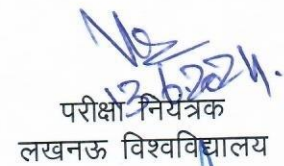 13.6.2024.
परीक्षा नियंत्रक
लखनऊ विश्वविद्यालय